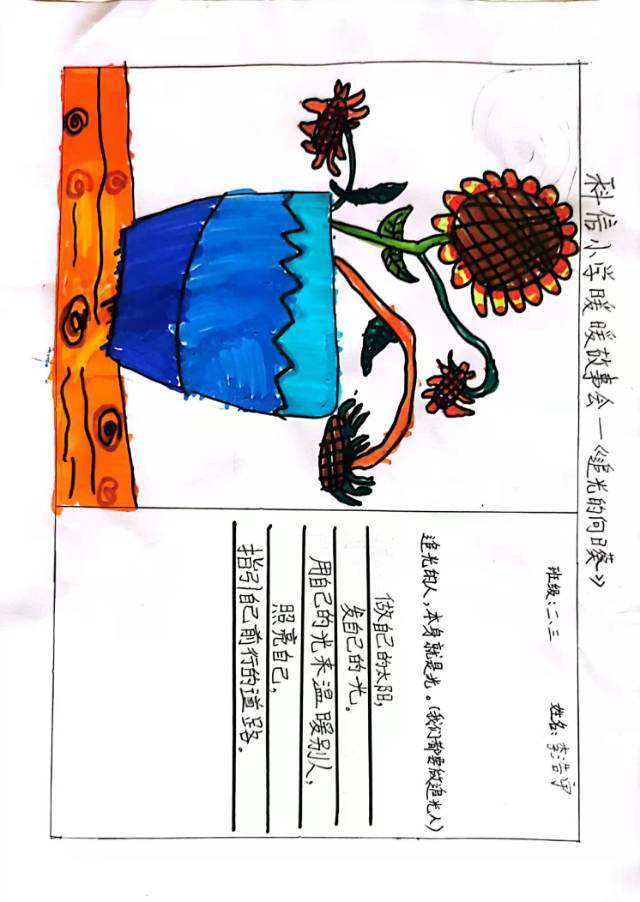 科信小学暖暖故事会一《追光的向日葵》
班级:二、三 姓名:李浩宇
追光的人,本身就是光。(我们都要做追光人)
做自己的太阳,
发自己的光。
用自己的光来温暖别人,
照亮自己,
指引自己前行的道路。